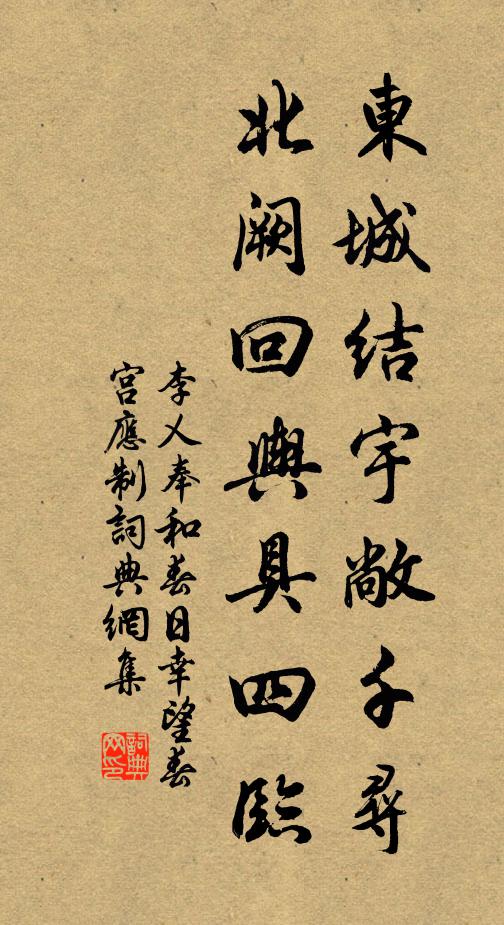 東城結宇敞千尋
北闕回輿具四臨
李乂奉和春日幸望春
宮應制詞典網集
詞典
网印